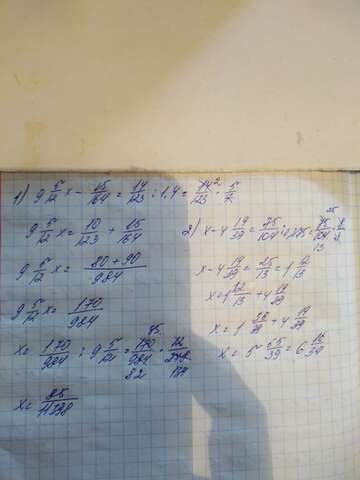 1) 9 5/12 x - 15/164 = 14/123 : 1,4 = 14²/123 · 5/7
9 5/12 x = 10/123 + 15/164
9 5/12 x = 80+90/984
9 5/12 x = 170/984
x = 170/984 : 9 5/12 =
x = 85/
2) x - 4 19/39 = 75/104 :
x - 4 19/39 = 25/13 = 1 12/13
x = 1 12/13 + 4 19/39
x = 1 36/39 + 4 19/39
x = 5 55/39 = 6 16/39